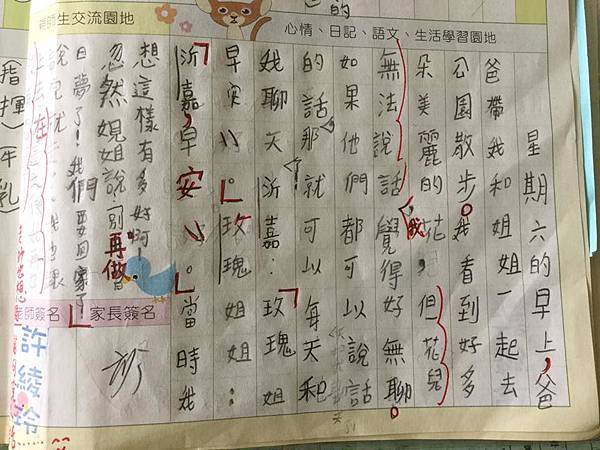 師生交流園地
心情、日記、語文、生活學習園地
星期六的早上,爸
爸帶我和姐姐一起去
公園散步。我看到好多
朵美麗的花,但花兒
無法說話,我覺得好無聊。
如果他們都可以說話
的話那就可以每天和
我聊天沂嘉:「玫瑰姐
早安!」。玫瑰姐姐:
「沂嘉,早安!」。當時我
想這樣有多好啊!
忽然姐姐說「別再做
白夢了!我們要回家了!」
家長簽名
師簽名
許綾玲
(指揮)(牛
乳)